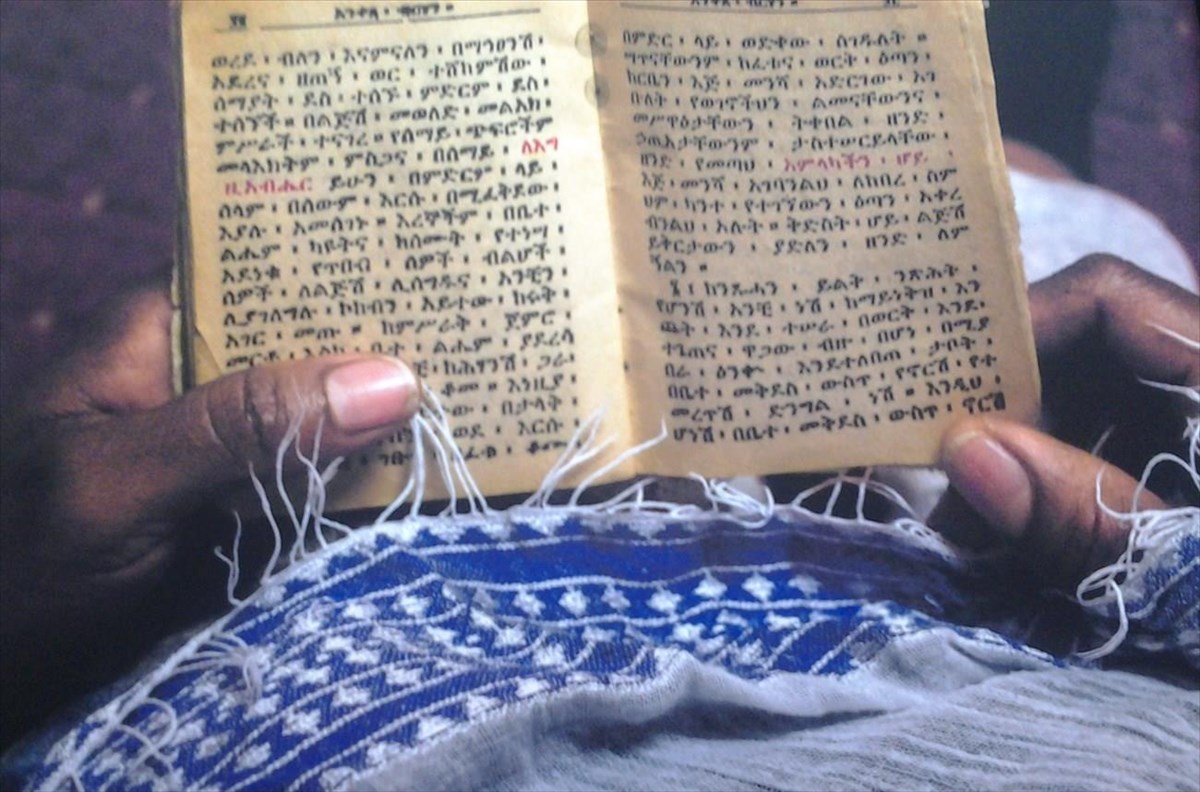 አንቀጸ ፡ ብርሃን ።
ወረደ ፡ ብለን ፡ እናምናለን ፡ በማኅፀንሽ ፡
አደረና ፡ ዘጠኝ ፡ ወር ፡ ተሸከምሽው ፡
ሰማያት ፡ ደስ ፡ ተሰኙ ፡ ምድርም ፡ ደስ ፡
ተሰኘች ። በልጅሽ ፡ መወለድ ፡ መልአክ
ምሥራች ፡ ተናገረ ። የሰማይ ፡ ጭፍሮችም
መላእክትም ፡ ምስጋና ፡ በሰማይ ፡ ለእግ
ዚአብሔር ይሁን ፡ በምድርም ፡ ላይ ፡
ሰላም ፡ በሰውም ፡ እርሱ ፡ በሚፈቅደው ፡
እያሉ ፡ አመሰገኑ ። እረኞችም ፡ በቤተ ፡
ልሔም ፡ ካዩትና ፡ ከሰሙት ፡ የተነሣ ፡
አደነቁ ፡ የጥበብ ፡ ሰዎች ፡ ብልሆች ፡
ሰዎች ፡ ለልጅሽ ፡ ሊሰግዱና ፡ አንቺን ፡
ሊያገለግሉ ፡ ኮከብን ፡ አይተው ፡ ከሩቅ ፡
አገር ፡ መጡ ። ከምሥራቅ ፡ ጀምሮ ፡
መርቶ ፡ እስከ ፡ ቤተ ፡ ልሔም ፡ ያደረሳ
ከሕፃንሽ ፡ ጋራ ፡
ቆመ ። እነዚያ ፡
በታላቅ ፡
እርሱ ፡
ቆመ
በምድር ፡ ላይ ፡ ወድቀው ፡ ሰገዱለት ።
ማጥናቸውንም ፡ ከፈቱና ፡ ወርቅ ፡ ዕጣን ፡
ከርቤን ፡ እጅ ፡ መንሻ ፡ አድርገው ፡ አገ
ቡለት ፡ የወገኖችህን ፡ ልመናቸውንና ፡
መሥዋዕታቸውን ፡ ትቀበል ፡ ዘንድ ፡
ኃጢአታቸውንም ፡ ታስተሠርይላቸው ፡
ዘንድ ፡ የመጣህ ፡ አምላካችን ፡ ሆይ ፡
እጅ ፡ መንሻ ፡ አገባንልህ ፡ ለከበረ ፡ ስም
ህም ፡ ካንተ ፡ የተገኘውን ፡ ዕጣን ፡ አቀረ
ብንልህ ፡ አሉት ። ቅድስት ፡ ሆይ ፡ ልጅሽ ፡
ይቅርታውን ፡ ያድለን ፡ ዘንድ ፡ ለም
ኝልን ።
፯ ፤ ከንጹሓን ፡ ይልቅ ፡ ንጽሕት ፡
የሆንሽ ፡ አንቺ ፡ ነሽ ፡ ከማይነቅዝ ፡ እን
ጨት ፡ እንደ ፡ ተሠራ ፡ በወርቅ ፡ እንደ ፡
ተጌጠና ፡ ዋጋው ፡ ብዙ ፡ በሆነ ፡ በሚያ
በራ ፡ ዕንቍ ፡ እንደተለበጠ ፡ ታቦት ፡
በቤተ ፡ መቅደስ ፡ ውስጥ ፡ የኖርሽ ፡ የተ
መረጥሽ ፡ ድንግል ፡ ነሽ ። እንዲህ ፡
ሆነሽ ፡ በቤተ ፡ መቅደስ ፡ ውስጥ ፡ ኖርሽ